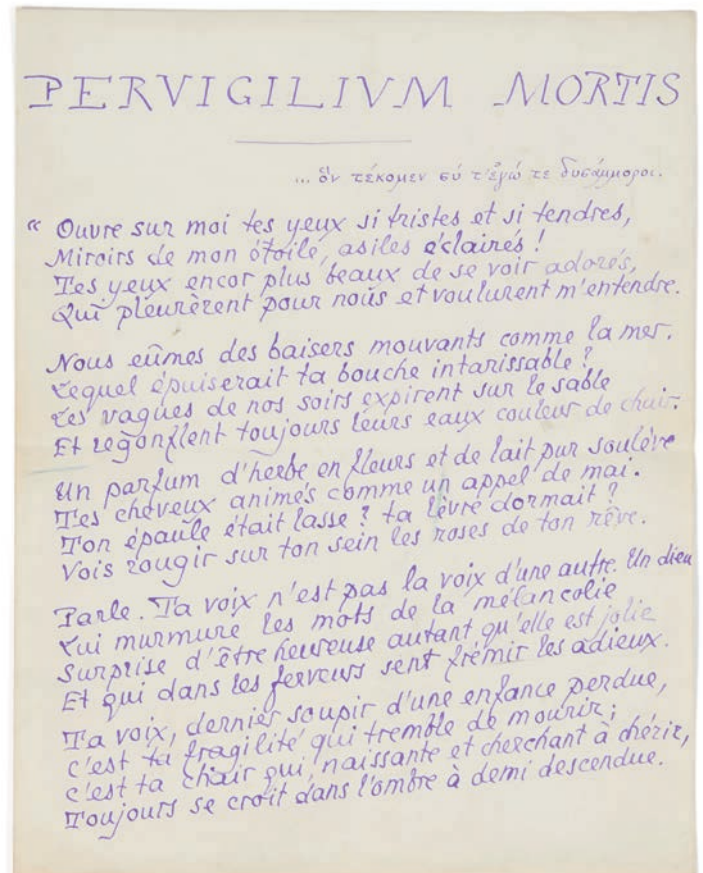 PERVIGILIVM MORTIS
... ὃν τέκομεν σύ τ'ἐγώ τε δυσάμμοροι.
« Ouvre sur moi tes yeux si tristes et si tendres,
Miroirs de mon étoile, asiles éclairés !
Tes yeux encor plus beaux de se voir adorés,
Qui pleurèrent pour nous et voulurent m'entendre.
Nous eûmes des baisers mouvants comme la mer.
Lequel épuiserait ta bouche intarissable ?
Les vagues de nos soirs expirent sur le sable
Et regonflent toujours leurs eaux couleur de chair.
Un parfum d'herbe en fleurs et de lait pur soulève
Tes cheveux animés comme un appel de mai.
Ton épaule était lasse ? ta lèvre dormait ?
Vois rougir sur ton sein les roses de ton rêve.
Parle. Ta voix n'est pas la voix d'une autre. Un dieu
Lui murmure les mots de la mélancolie
Surprise d'être heureuse autant qu'elle est jolie
Et qui dans les ferveurs sent frémir les adieux.
Ta voix, dernier soupir d'une enfance perdue,
C'est ta fragilité qui tremble de mourir ;
C'est ta chair qui, naissante et cherchant à chérir,
Toujours se croit dans l'ombre à demi descendue.